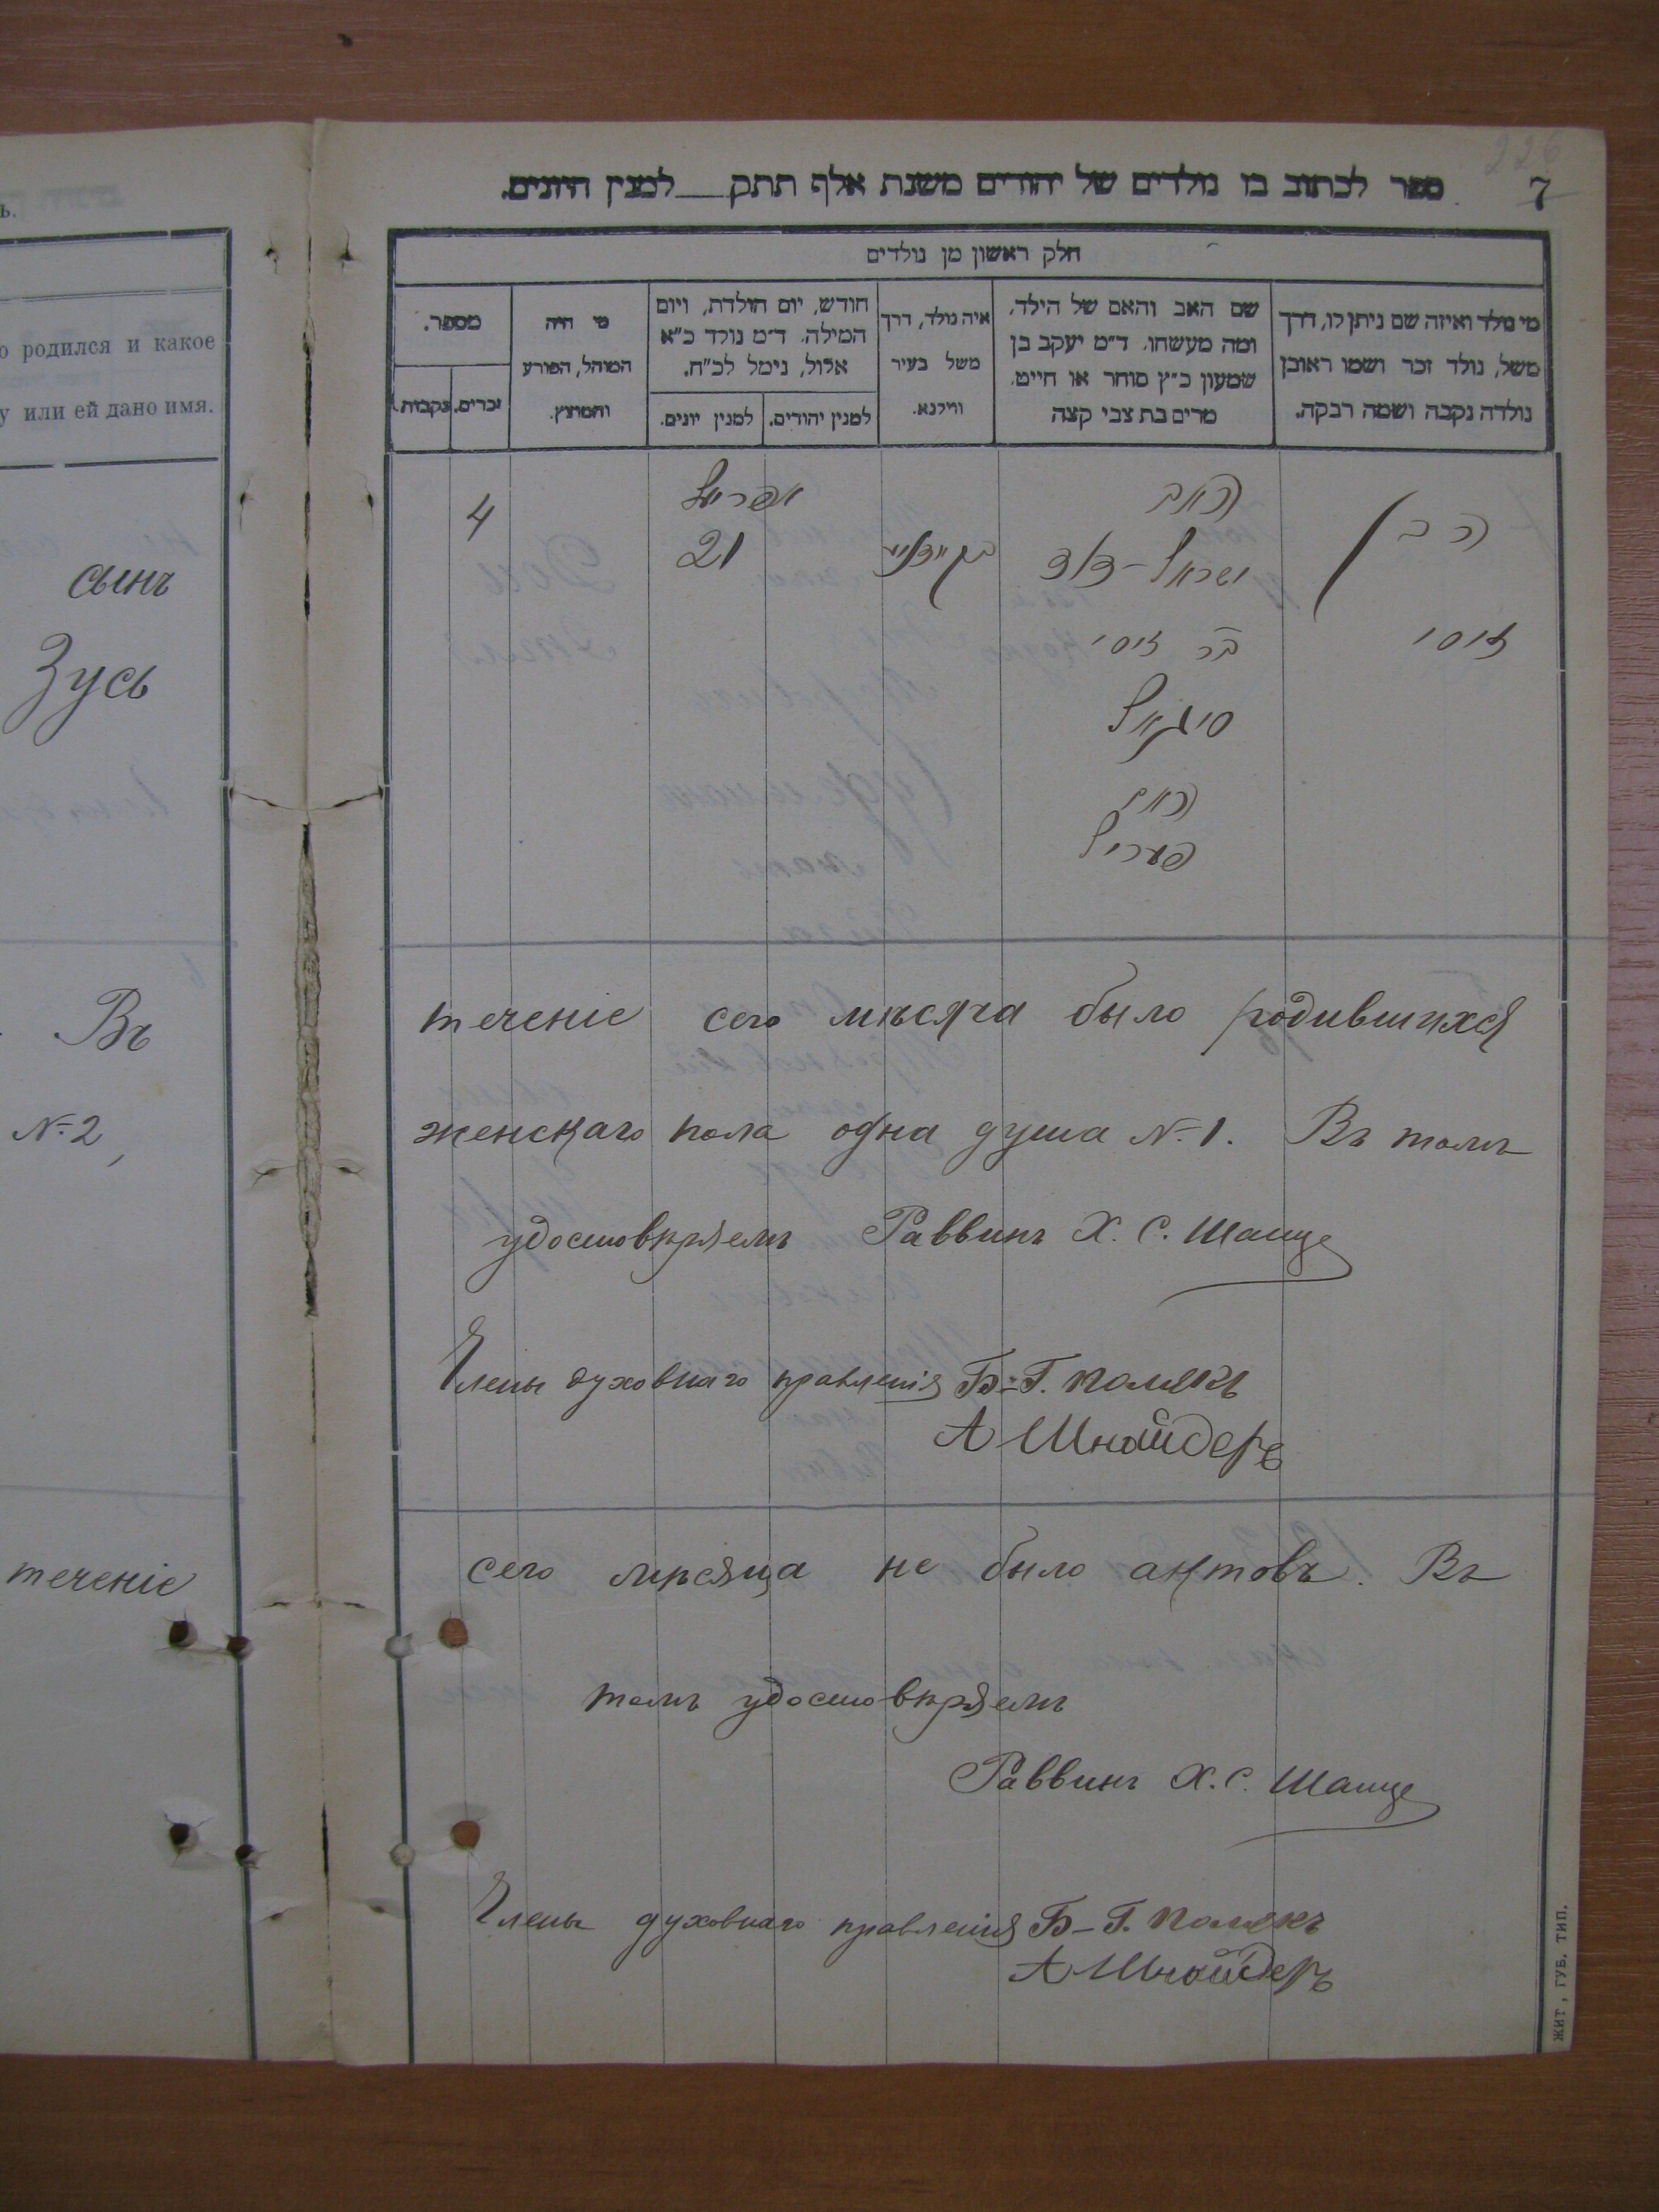 226
7
ספר לכתוב בו נולדים של יהודים משנת אלף תתק ___ למנין היונים.
חלק ראשון מן נולדים
מי נולד ואיזה שם ניתן לו, דרך
משל, נולד זכר ושמו ראובן
נולדה נקבה ושמה רבקה.
שם האב והאם של הילד,
ומה מעשהו. ד״מ יעקב בן
שמעון כ״ץ סוחר או חייט.
מרים בת צבי קצה
איה נולד, דרך
משל בעיר
ווילנא.
חודש, יום הולדת, ויום
המילה. ד״מ נולד כ״א
אלול, נימל לכ״ח.
למנין יהודים.
למנין יונים.
מי היה
המוהל, הפורע
והמוצץ.
מספר.
זכרים.
נקבות.
ь.
о родился и какое
у или ей дано имя.
сынъ
Зусь
Въ
№ 2,
теченіе
זוסי
האב
ישראל-דוד
בר זוסי
סיגאל
האם
אפריל
21
4
теченіе сего мѣсяца было родившихся
женскаго пола одна душа № 1. Въ томъ
удостовѣряемъ Раввинъ Х. С. Шапце
Члены духовнаго правленія Б-Г. Полякъ
А Шнайдеръ
сего мѣсяца не было актовъ. Въ
томъ удостовѣряемъ
Раввинъ Х. С. Шапце
Члены духовнаго правленія Б-Г. Полякъ
А Шнайдеръ
ЖИТ, ГУБ. ТИП.